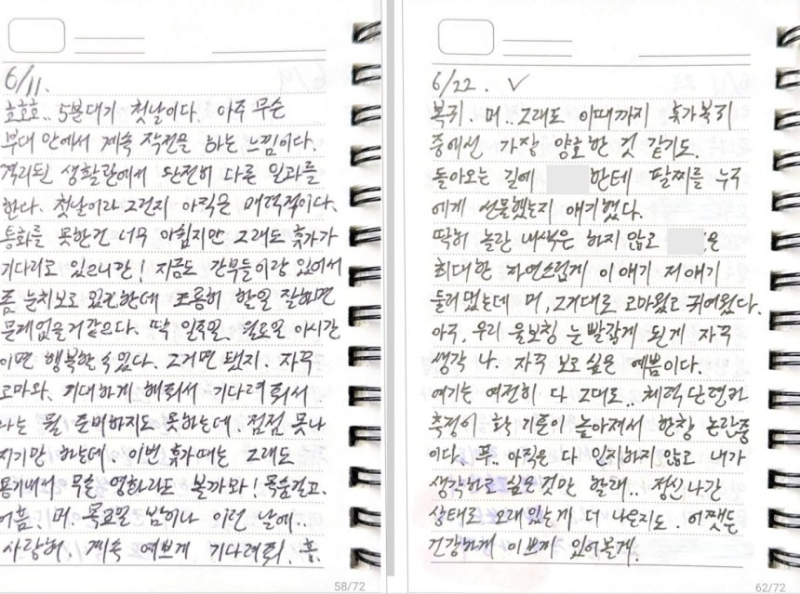 6/11.
호호호.. 5분대기 첫날이다. 아주 무슨
부대 안에서 계속 작전을 하는 느낌이다.
격리된 생활관에서 완전히 다른 일과를
한다. 첫날이라 그런지 아직은 매력적이다.
통화를 못한건 너무 아쉽지만 그래도 휴가가
기다리고 있으니깐! 지금도 간부들이랑 있어서
좀 눈치보고 있긴한데 조용히 할일 잘하면
문제없을거같으다. 딱 일주일, 월요일 이시간
이면 행복할 수 있다. 그거면 됐지. 자꾸
고마와. 기대하게 해줘서 기다려줘서
나는 뭘 준비하지도 못하는데. 점점 못나
지기만 하는데. 이번 휴가때는 그래도
용기내서 무슨 영화라도 볼까봐! 목숨걸고.
어흠. 머. 목요일 밤이나 이런 날에..
사랑해. 계속 예쁘게 기다려줘. 흥.
58/72
6/22. ✓
복귀. 머.. 그래도 이때까지 휴가복귀
중에선 가장 양호한 것 같기도.
돌아오는 길에 한테 팔찌를 누구
에게 선물했는지 얘기했다.
딱히 놀란 내색은 하지 않고 은
최대한 자연스럽게 이 얘기 저 얘기
둘러댔는데 머, 그거대로 고마웠고 귀여웠다.
아주, 우리 울보칭 눈 빨갛게 된게 자꾸
생각 나. 자꾸 보고싶은 예쁨이다.
여기는 여전히 다 그대로.. 체력단련과
측정이 확 기준이 높아져서 한창 논란중
이다. 푸.. 아직은 다 인지하지 않고 내가
생각하고 싶은 것만 할래.. 정신 나간
상태로 오래있는게 더 나은지도. 어쨌든
건강하게 이쁘게 있어볼게.
62/72